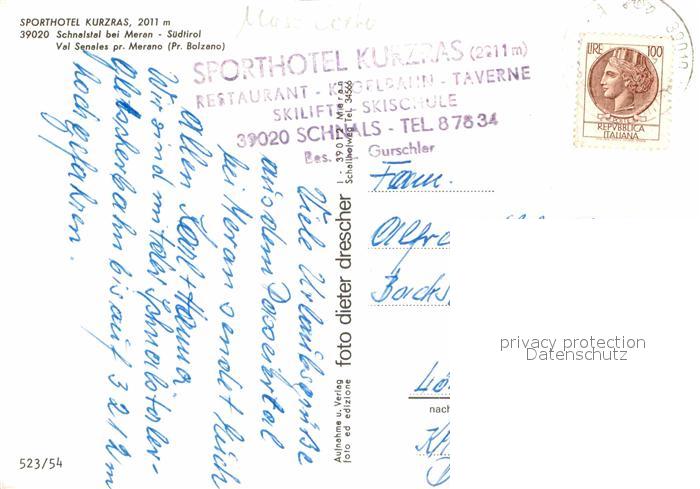 SPORTHOTEL KURZRAS, 2011 m
39020 Schnalstal bei Meran - Südtirol
Val Senales pr. Merano (Pr. Bolzano)
SPORTHOTEL KURZRAS (2011m)
RESTAURANT - KEGELBAHN - TAVERNE
SKILIFTE - SKISCHULE
39020 SCHNALS - TEL. 87834
Bes. Gurschler
LIRE 100
REPVBBLICA
ITALIANA
39020
Viele Urlaubsgrüße
aus dem Passeiertal
bei Meran sendet Euch
allen Karl + Hanna
Wir sind mit der Schnalstaler-
gletscherbahn bis auf 3212 m
hochgefahren.
Aufnahme u. Verlag
foto ed edizione
foto dieter drescher
I - 39012 Meran
Schallhofweg Tel. 34566
Fam.
Alfre
nach
privacy protection
Datenschutz
523/54